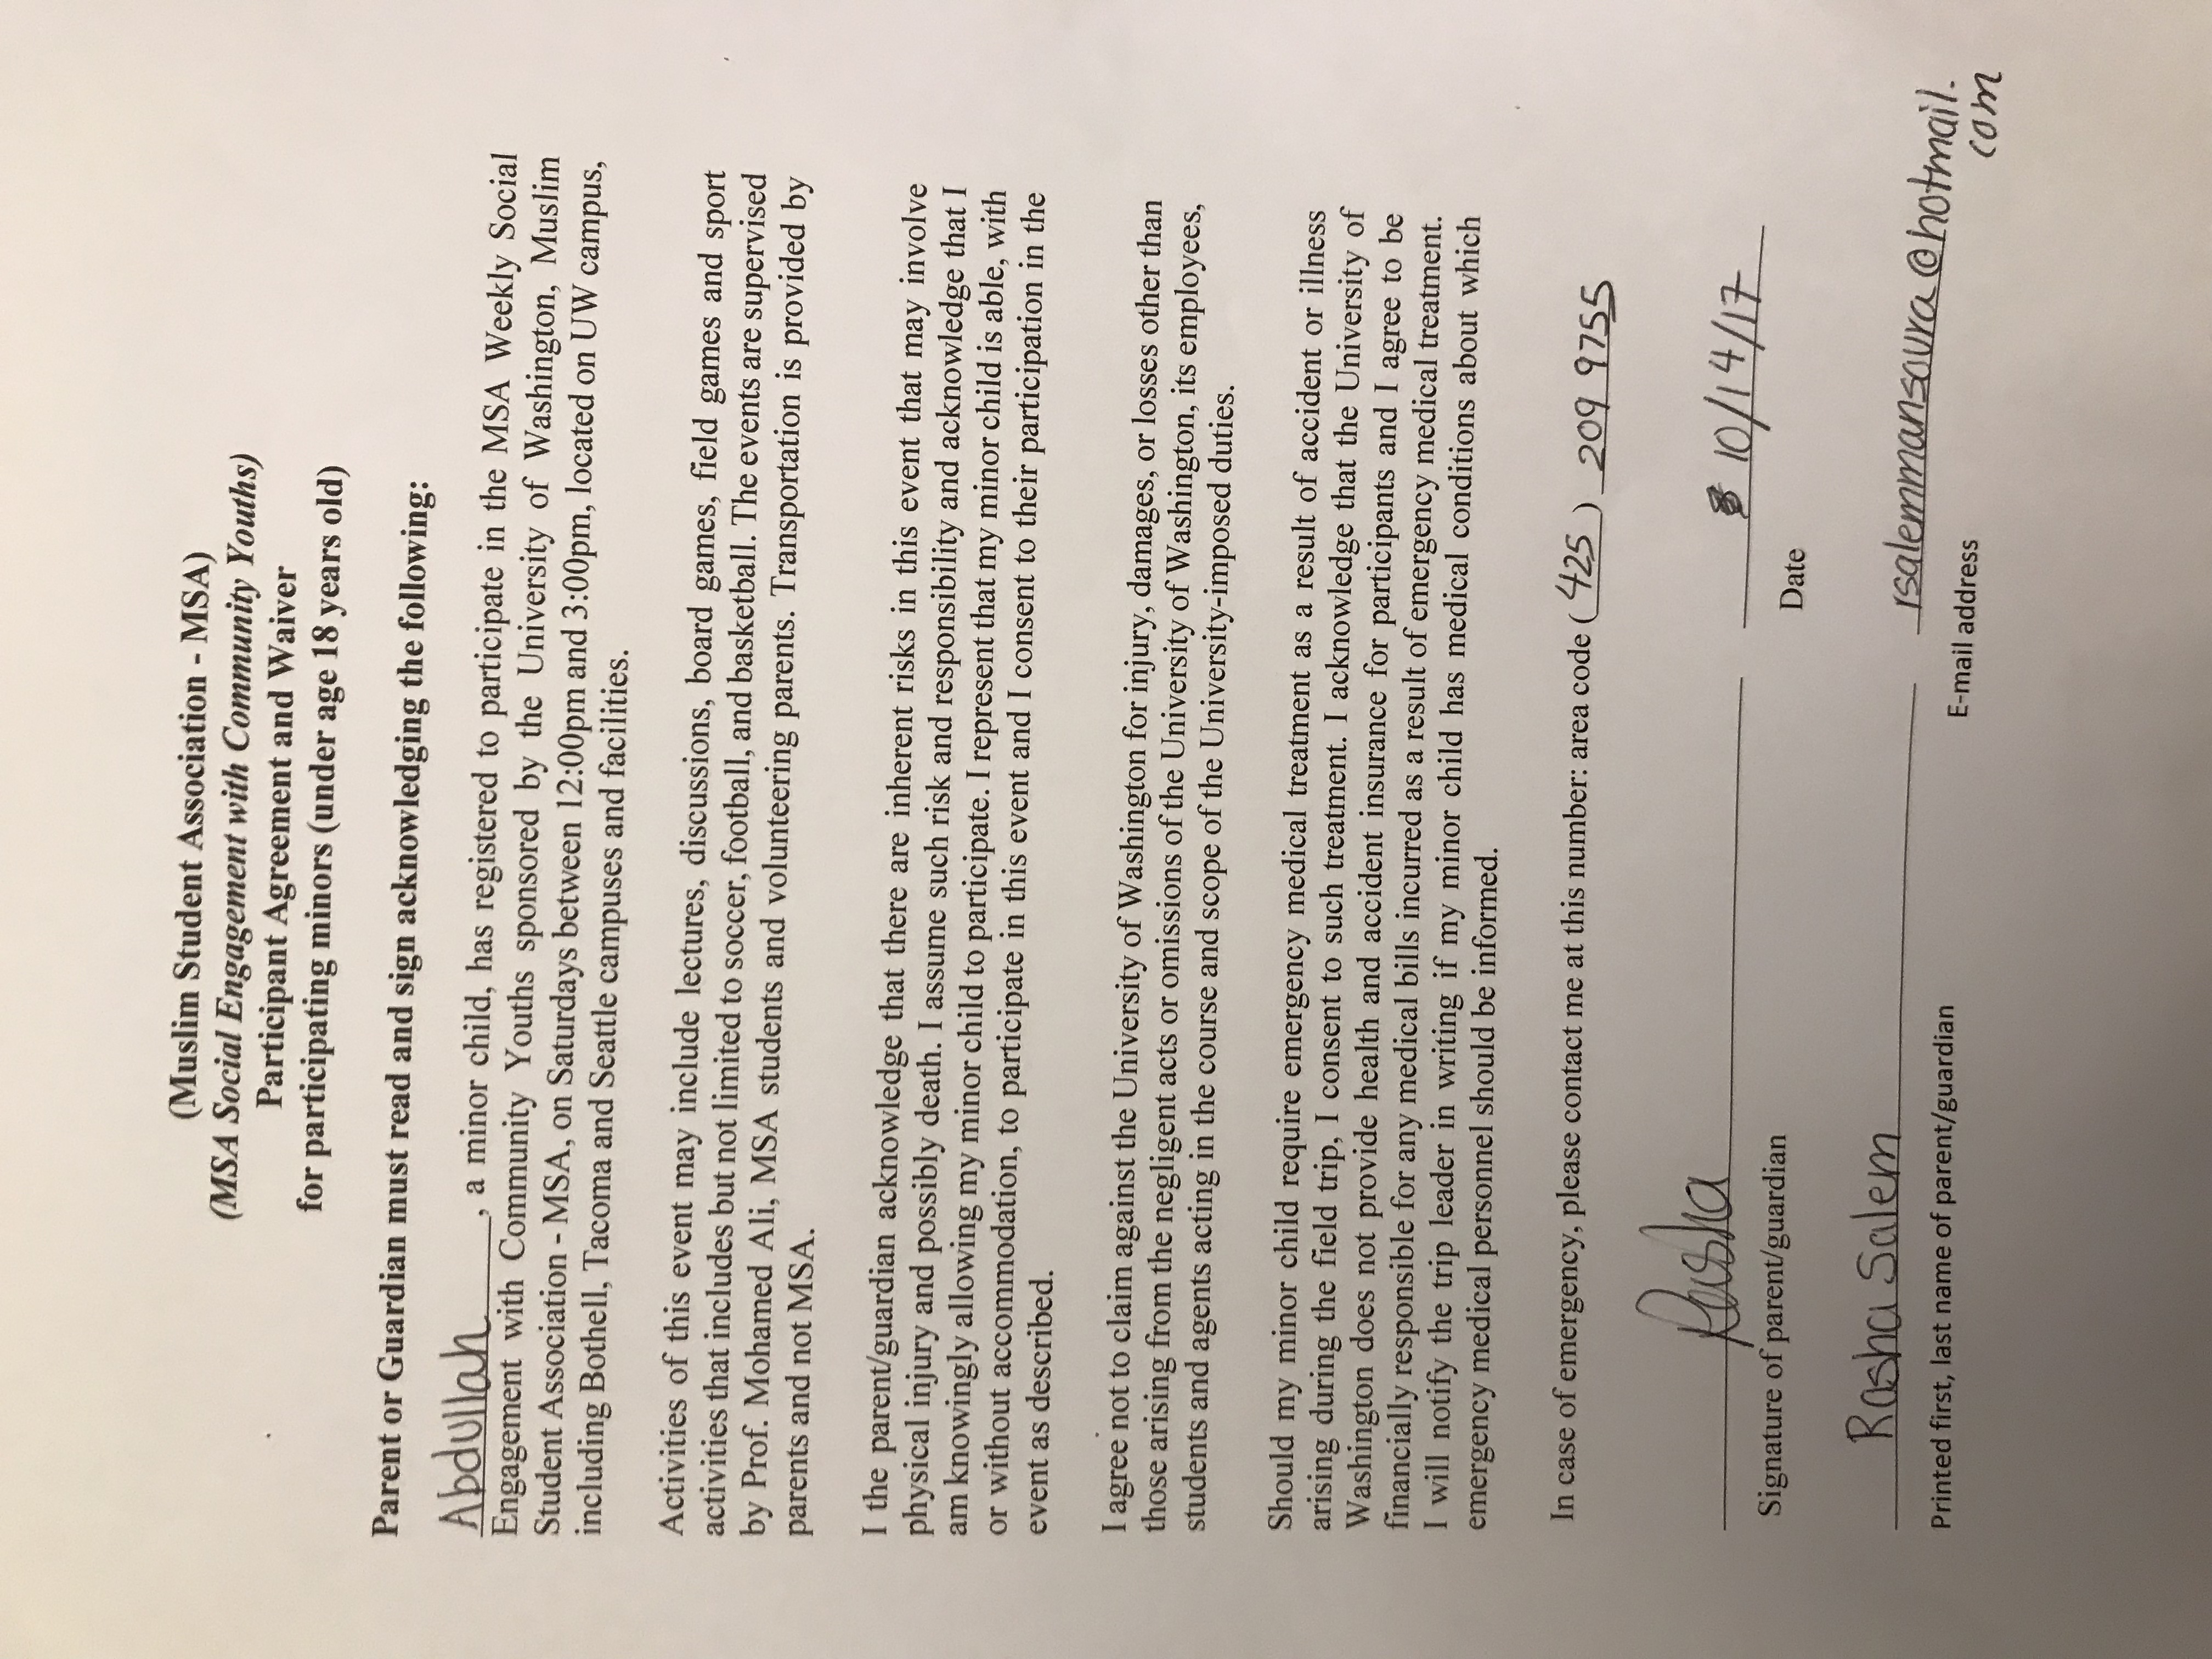 (Muslim Student Association - MSA)
(MSA Social Engagement with Community Youths)
Participant Agreement and Waiver
for participating minors (under age 18 years old)
Parent or Guardian must read and sign acknowledging the following:
Abdullah, a minor child, has registered to participate in the MSA Weekly Social
Engagement with Community Youths sponsored by the University of Washington, Muslim
Student Association - MSA, on Saturdays between 12:00pm and 3:00pm, located on UW campus,
including Bothell, Tacoma and Seattle campuses and facilities.
Activities of this event may include lectures, discussions, board games, field games and sport
activities that includes but not limited to soccer, football, and basketball. The events are supervised
by Prof. Mohamed Ali, MSA students and volunteering parents. Transportation is provided by
parents and not MSA.
I the parent/guardian acknowledge that there are inherent risks in this event that may involve
physical injury and possibly death. I assume such risk and responsibility and acknowledge that I
am knowingly allowing my minor child to participate. I represent that my minor child is able, with
or without accommodation, to participate in this event and I consent to their participation in the
event as described.
I agree not to claim against the University of Washington for injury, damages, or losses other than
those arising from the negligent acts or omissions of the University of Washington, its employees,
students and agents acting in the course and scope of the University-imposed duties.
Should my minor child require emergency medical treatment as a result of accident or illness
arising during the field trip, I consent to such treatment. I acknowledge that the University of
Washington does not provide health and accident insurance for participants and I agree to be
financially responsible for any medical bills incurred as a result of emergency medical treatment.
I will notify the trip leader in writing if my minor child has medical conditions about which
emergency medical personnel should be informed.
In case of emergency, please contact me at this number: area code (425) 209 9755
Rasha 10/14/17
Signature of parent/guardian Date
Rasha Salem rsalemmansoura@hotmail.
com
Printed first, last name of parent/guardian E-mail address